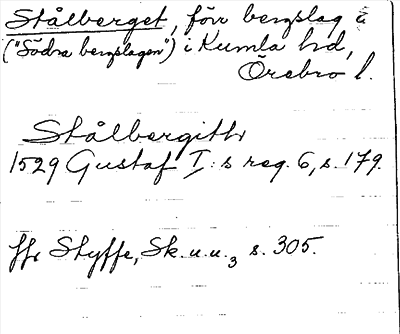 Stålberget, förr bergslag
("Södra bergslagen") i Kumla hd,
Örebro l.
Stålbergith
1529 Gustaf I:s reg. 6, s. 179.
jfr Styffe, Sk.u.u.3 s. 305.